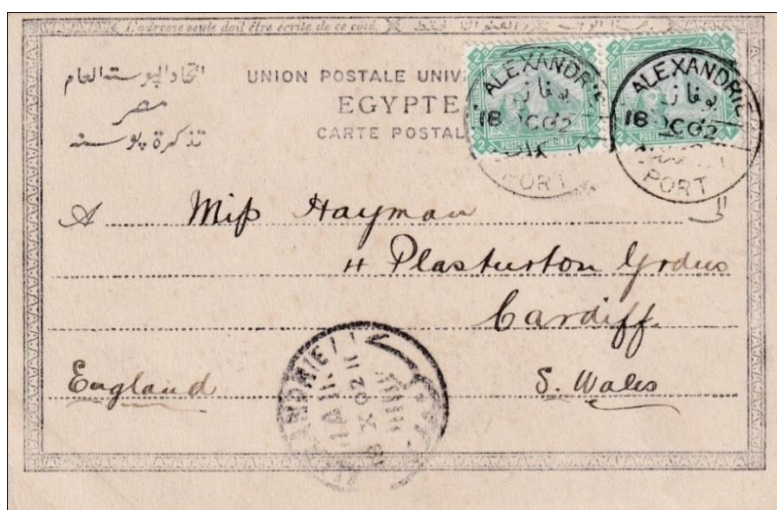 L'adresse seule doit être écrite de ce côté.
اتحاد البوسته العام
مصر
تذكرة بوسته
UNION POSTALE UNIV
EGYPTE
CARTE POSTAL
2
2
2
2
ALEXANDRIE
18 OC 02
PORT
ALEXANDRIE
18 OC 02
PORT
A Miss Hayman الى
11 Plasturton Grdns
Cardiff
England S. Wales
X 02